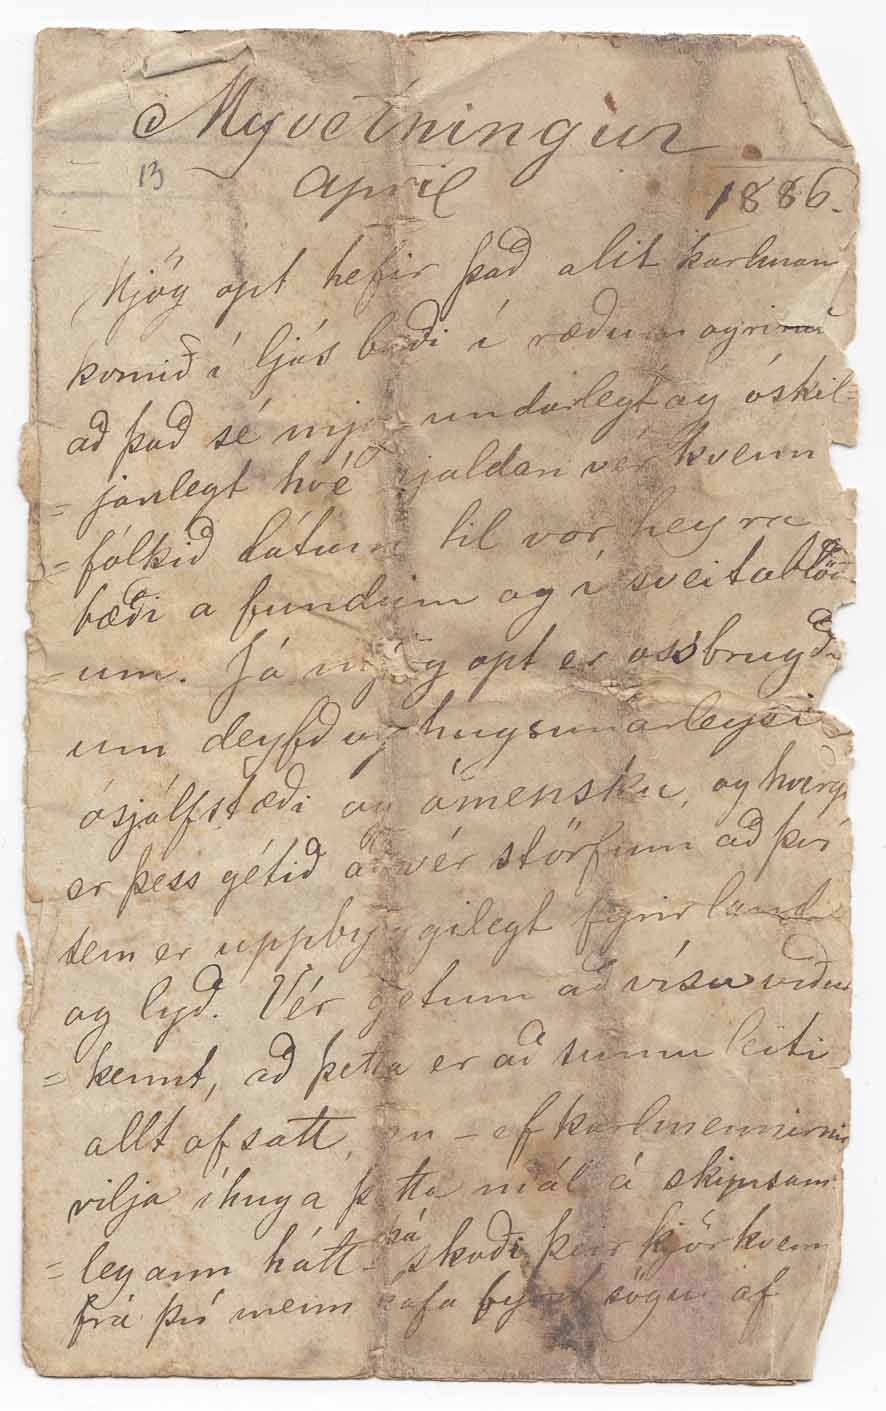 Myvetningur
13 April 1886.
Mjög opt hefir það alit karlman
komið í ljós bæði í ræðum og
að það sé mjög undarlegt og óskil=
=janlegt hvé sjaldan vér kvenn
=fólkið látum til vor heyra
bæði a fundum og í sveitablöð
=um. Já mjög opt er oss brugði
um deyfð og hugsunarleysi
ósjálfstæði og ómensku, og hvergi
er þess gétið að vér störfum að því
sem er uppbyggilegt fyrir land
og lyð. Vér getum að vísu viður
=kennt, að þetta er að sumu leiti
allt of satt, en - ef karlmennirnir
vilja íhuga þetta mál á skynsam
=legann hátt - þá skoði þeir kjör kvenn
frá því menn hafa fyrst sögur af